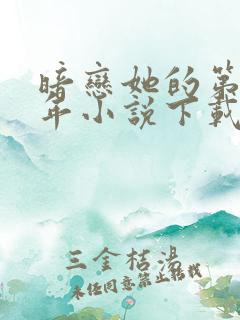 暗戀她的第
年小說下載
三金桔湯
未經同意禁止轉載